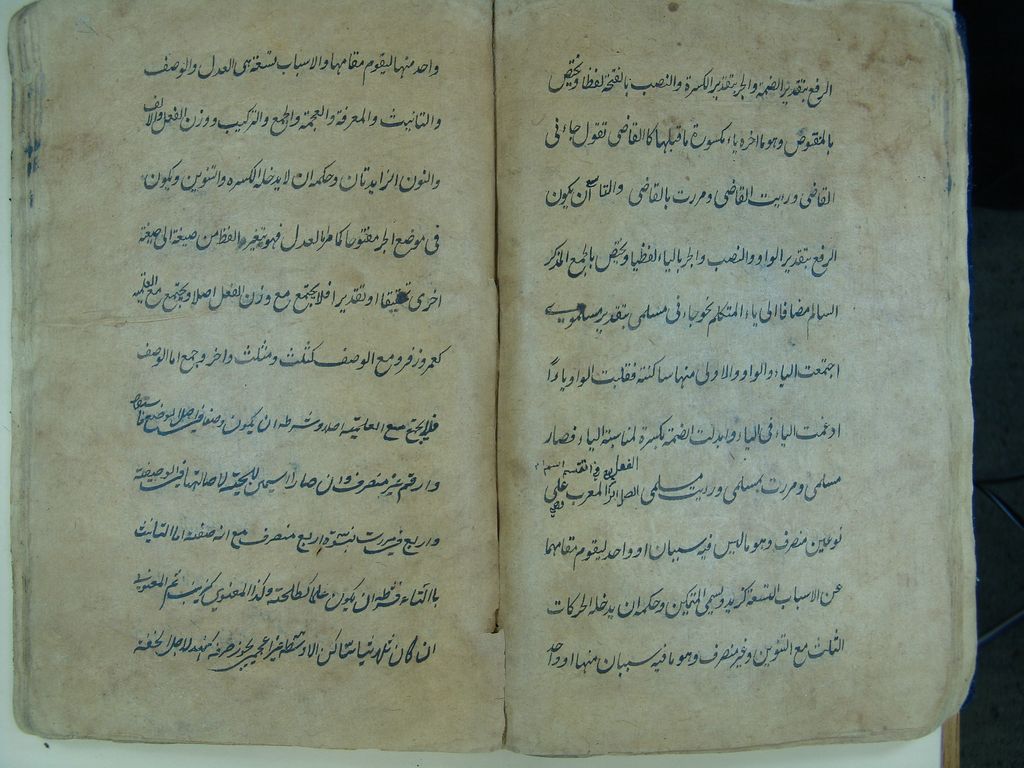 الرفع بتقدير الضمة والجر بتقدير الكسرة والنصب بالفتحة لفظا ويختص
بالمنقوص وهو ما اخره ياء مكسورة ما قبلها كالقاضى تقول جاءنى
القاضى ورايت القاضى ومررت بالقاضى والتاسع ان يكون
الرفع بتقدير الواو والنصب والجر بالياء لفظيا ويختص بالجمع المذكر
السالم مضافا الى ياء المتكلم نحو جاءنى مسلمى بتقدير مسلموى
اجتمعت الياء والواو والاولى منها ساكنة فقلبت الواو ياءا
ادغمت الياء فى الياء وابدلت الضمة بكسرة لمناسبة الياء فصار
مسلمى ومررت بمسلمى ورايت مسلمى المعرب على
نوعين منصرف وهو ما ليس فيه سببان او واحد ليقوم مقامهما
عن الاسباب التسعة كزيد ويسمى المتمكن وحكمه ان يدخله الحركات
الثلث مع التنوين وغير منصرف وهو ما فيه سببان منها او واحد
واحد منها ليقوم مقامها والاسباب تسعة هى العدل والوصف
والتانيث والمعرفة والعجمة والجمع والتركيب ووزن الفعل والالف
والنون الزايدتان وحكمه ان لا يدخله الكسره والتنوين ويكون
فى موضع الجر مفتوحا كما مر العدل فهو تغير اللفظ من صيغة الى صيغة
اخرى تحقيقا او تقديرا فلا يجتمع مع وزن الفعل اصلا ويجتمع مع العلمية
كعمر وزفر ومع الوصف كثلث ومثلث واخر وجمع اما الوصف
فلا يجتمع مع العلمية اصلا وشرطه ان يكون وصفا فى اصل الوضع
وارقم غير منصرف وان صارا اسمين للحية لاصالتها فى الوصفية
واربع فى مررت بنسوة اربع منصرف مع انه صفة اما التانيث
بالتاء فشرطه ان يكون علما كطلحة وكذا المعنوى كزينب ثم المعنوى
ان كان ثلاثيا ساكن الاوسط غير اعجمى يجوز صرفه كهند لاجل الخفة